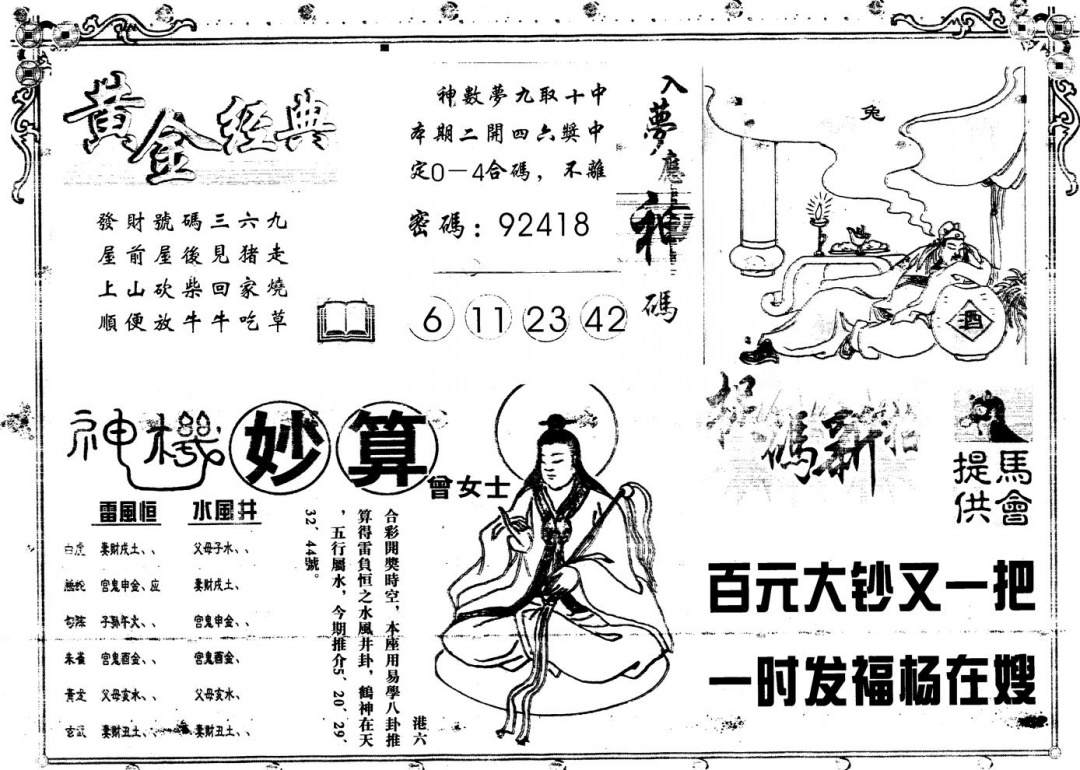 黃金經典
發財號碼三六九
屋前屋後見猪走
上山砍柴回家燒
順便放牛牛吃草
神數夢九取十中
本期二開四六獎中
定0一4合碼，不離
密碼：92418
6 11 23 42
入夢應神碼
兔
酒
神機妙算
曾女士
雷風恒 水風井
白虎 妻財戌土、、 父母子水、、
螣蛇 官鬼申金、应 妻財戌土、
勾陈 子孙午火、、 官鬼申金、、
朱雀 官鬼酉金、、 官鬼酉金、
青龙 父母亥水、、 父母亥水、
玄武 妻財丑土、、 妻財丑土、、
港六
合彩開獎時空，本座用易學八卦推
算得雷負恒之水風井卦，鶴神在天
，五行屬水，今期推介5、20、29、
32、44號。
碼新
馬會
提供
百元大钞又一把
一时发福杨在嫂